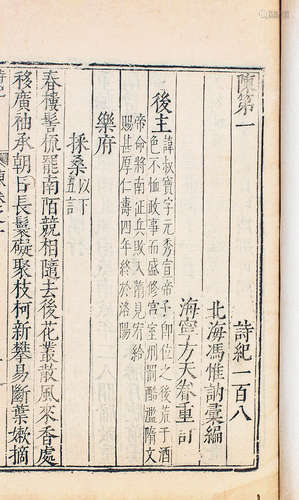 陳第一　詩紀一百八
北海馮惟訥彙編
海寧方天眷重訂
後主 諱叔寶字元秀宣帝子即位之後荒于酒
色不恤政事而盛修宮室刑罰酷濫隋文
帝命將南征兵敗入隋見宥給
賜甚厚仁壽四年終於洛陽
樂府
採桑 以下五言
春樓髻梳罷南陌競相隨去後花叢散風來香處
移廣袖承朝日長鬟礙聚枝柯新攀易斷葉嫩摘